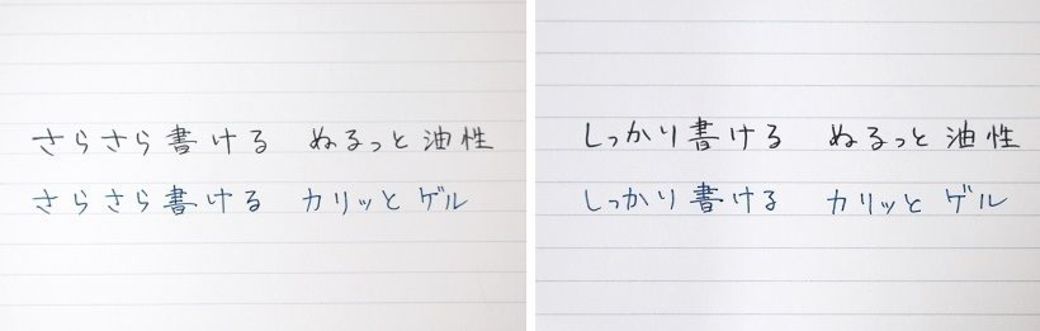 さらさら書ける ぬるっと油性
さらさら書ける カリッとゲル
しっかり書ける ぬるっと油性
しっかり書ける カリッとゲル